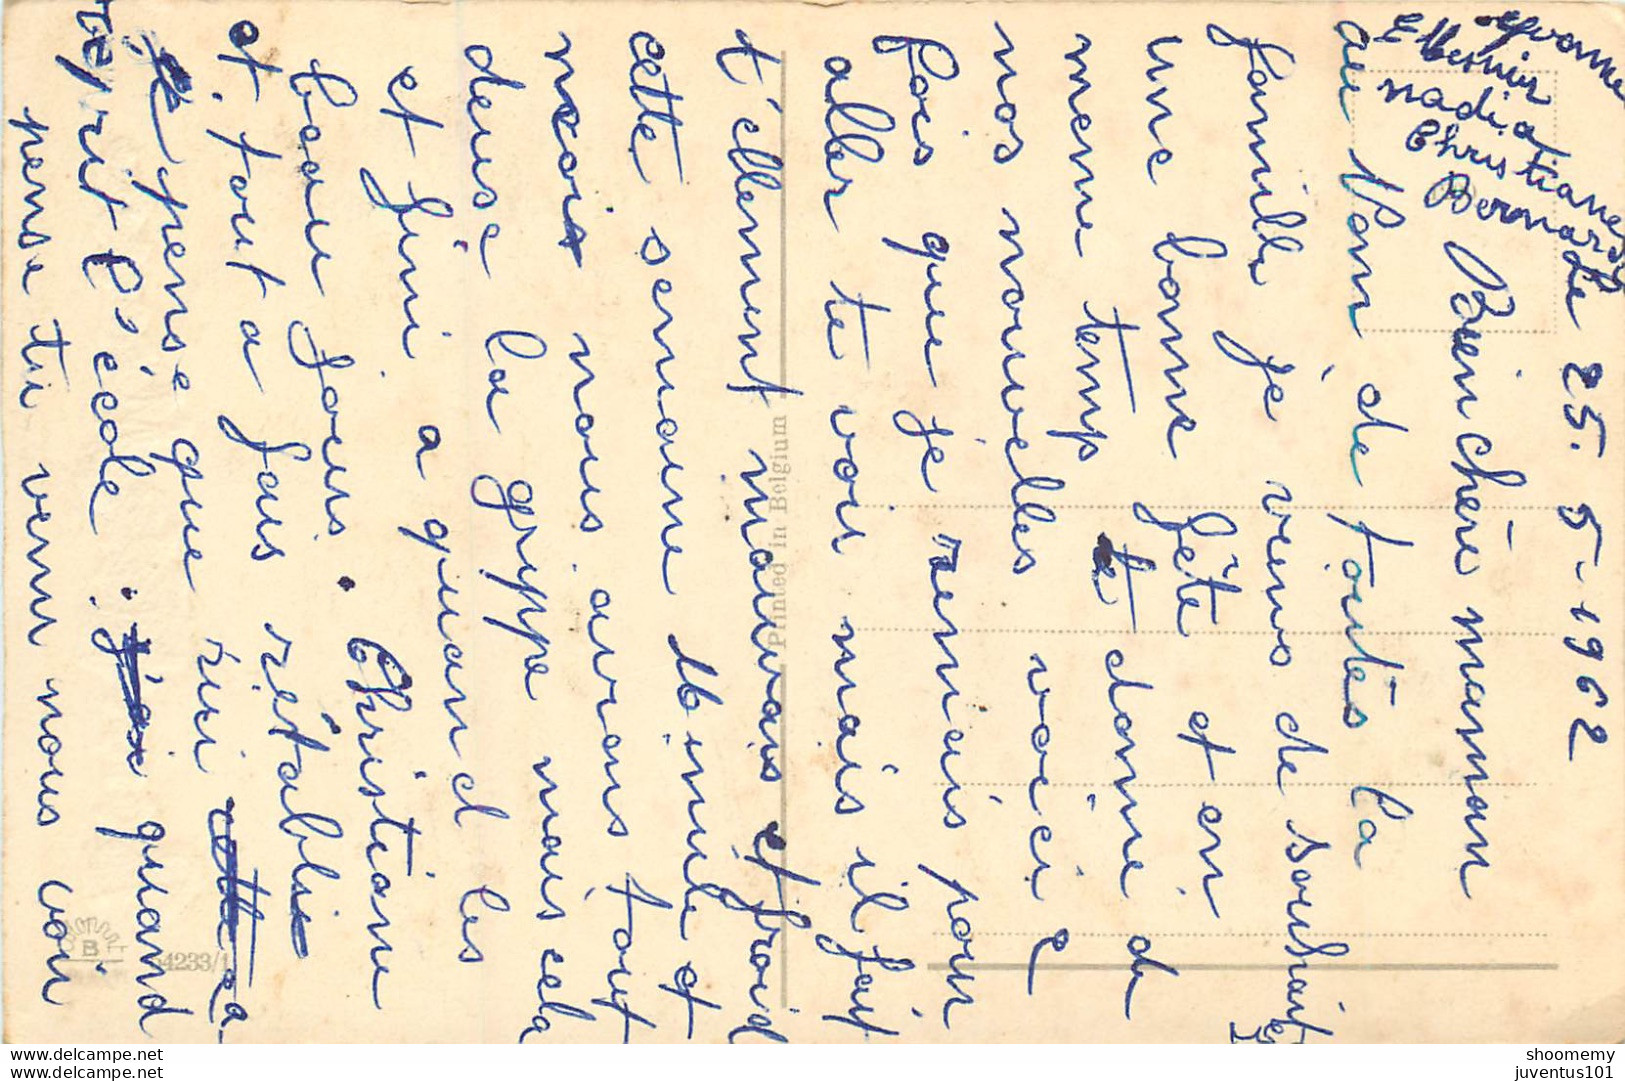 Le 25. 5-1962
Bien chère maman
au Nom de toutes la
famille je viens de souhaiter
une bonne fête et en
meme temp te donne de
nos nouvelles voici 2
fois que je remais pour
aller te voir mais il fait
t'éllement mauvais et froid
cete semaine Mimile et
moi nous avons tout
deuse la grippe mais cela
et fini a quand les
beau jours. Christiane
et tout a fais rétablie
je pense que riri
repris l'école. quand
pense tu venir nous voir
Yvonne
Nadia
Christiane
Bernard
Printed in Belgium
B
4233/1
www.delcampe.net
www.delcampe.net
shoomemy
juventus101